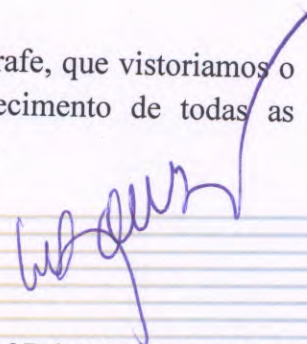 rafe, que vistoriamos o
ecimento de todas as